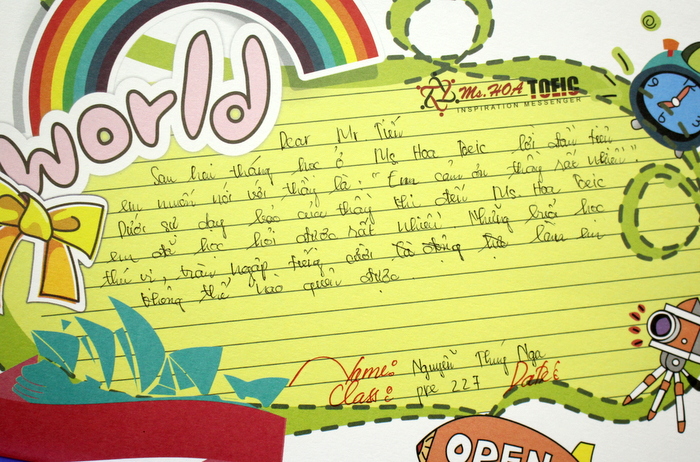 world
Ms. HOA TOEIC
INSPIRATION MESSENGER
Dear Mr Tiến
Sau hai tháng học ở Ms Hoa Toeic lời đầu tiên
em muốn nói với thầy là: "Em cảm ơn thầy rất nhiều".
Dưới sự dạy bảo của thầy khi đến Ms Hoa Toeic
em đã học hỏi được rất nhiều. Những buổi học
thú vị, tràn ngập tiếng cười làm em
không thể nào quên được
Name: Nguyễn Thúy Nga
Class: pre 227 Date:
OPEN